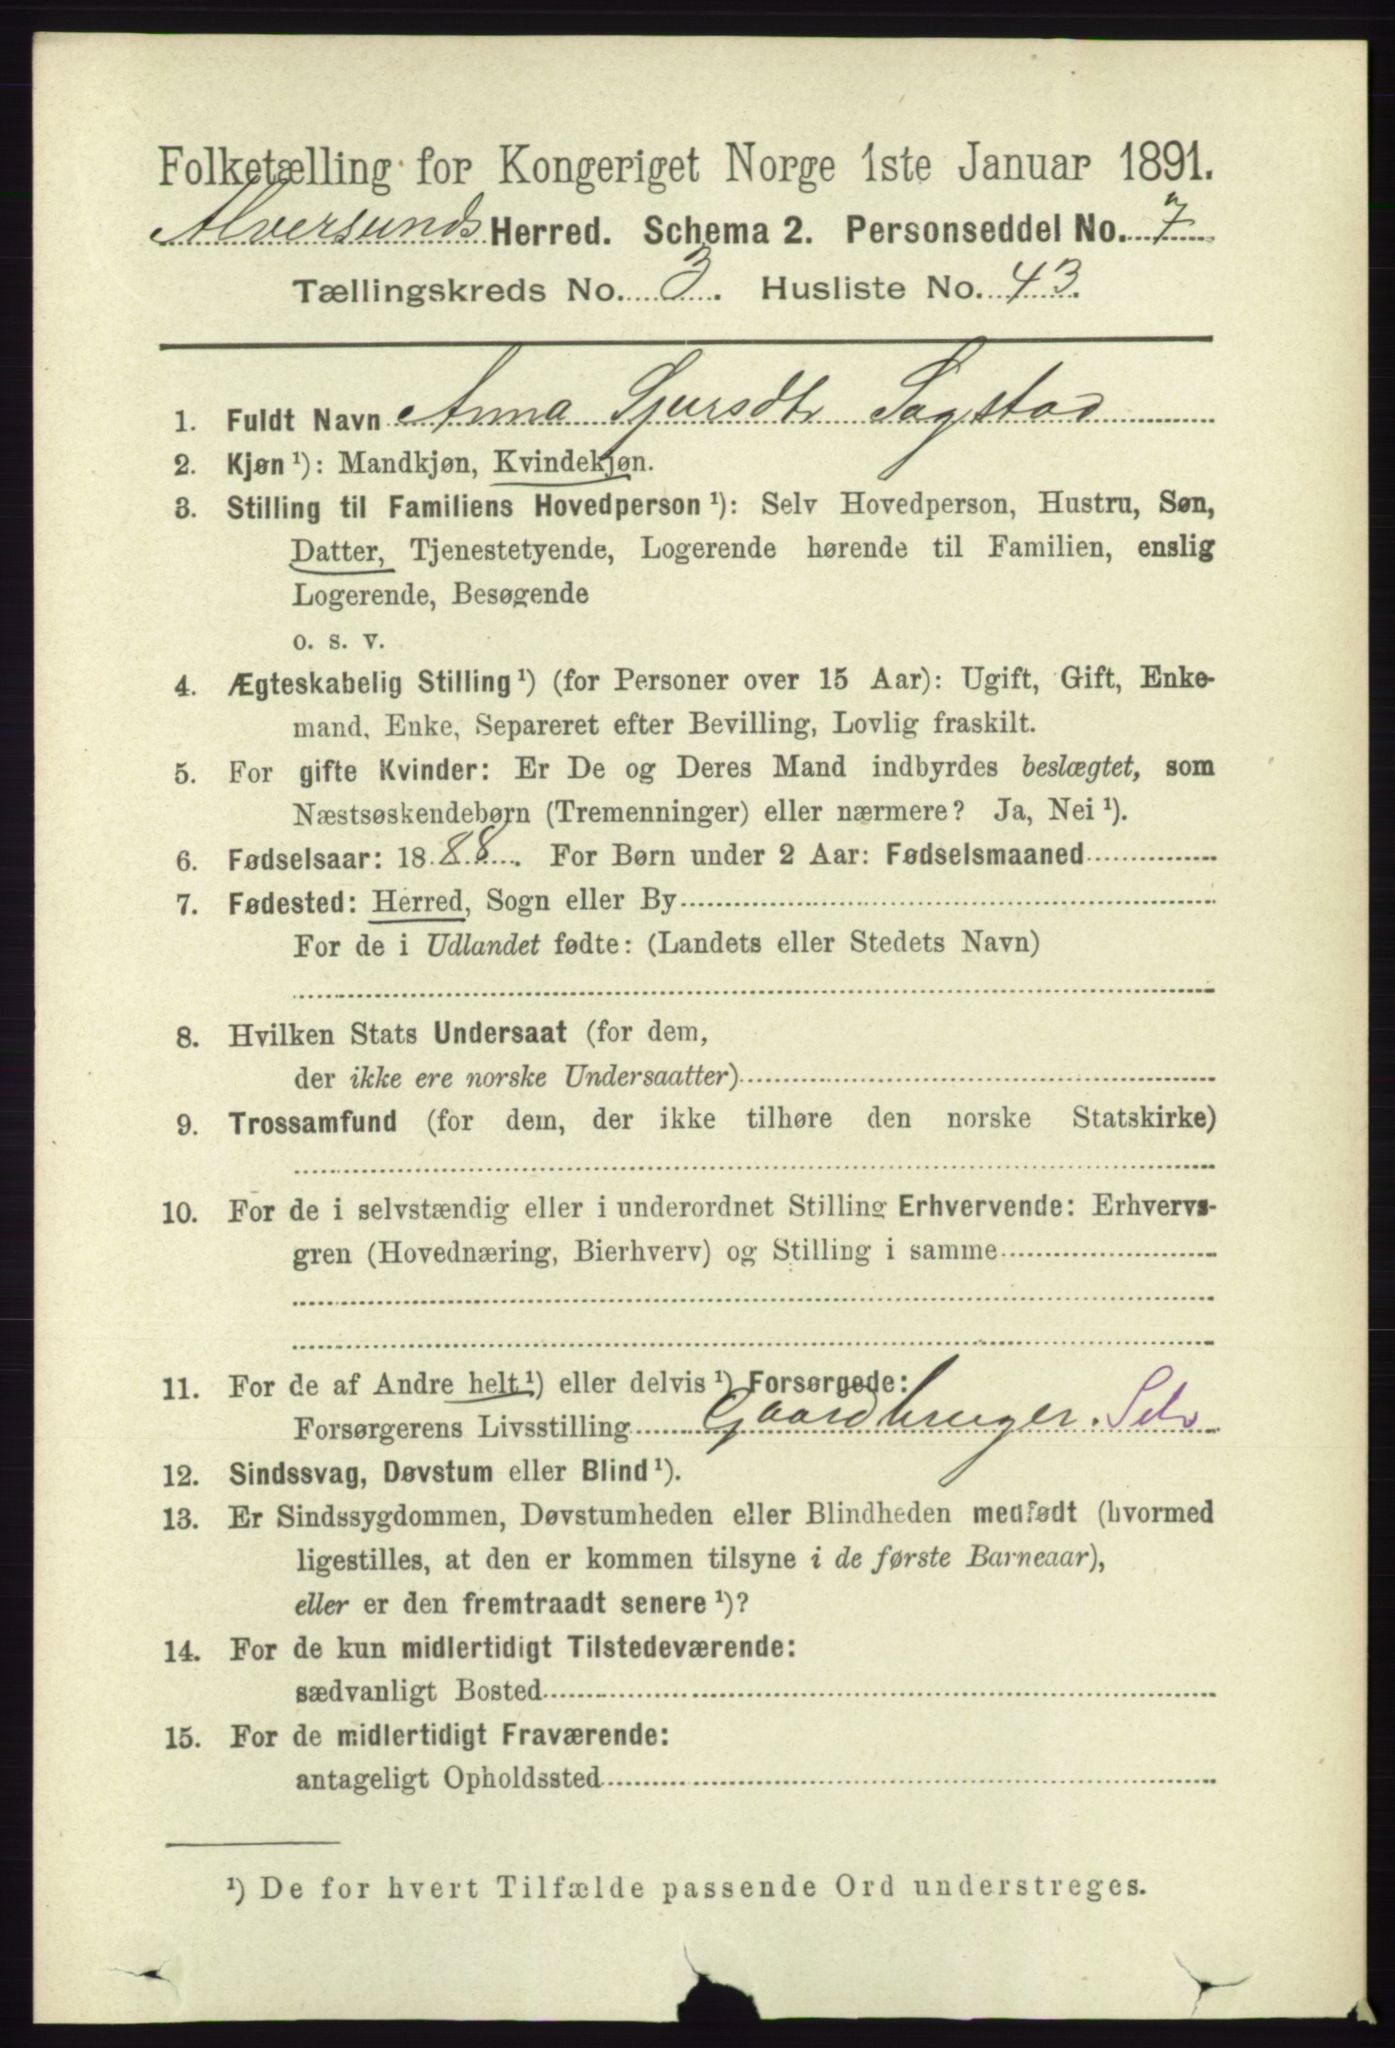 Folketælling for Kongeriget Norge 1ste Januar 1891.
Alversunds Herred. Schema 2. Personseddel No. 7
Tællingskreds No. 3. Husliste No. 43.
1. Fuldt Navn Anna Sjursdtr Sagstad
2. Kjøn ¹): Mandkjøn, Kvindekjøn.
3. Stilling til Familiens Hovedperson ¹): Selv Hovedperson, Hustru, Søn,
Datter, Tjenestetyende, Logerende hørende til Familien, enslig
Logerende, Besøgende
o. s. v.
4. Ægteskabelig Stilling ¹) (for Personer over 15 Aar): Ugift, Gift, Enke-
mand, Enke, Separeret efter Bevilling, Lovlig fraskilt.
5. For gifte Kvinder: Er De og Deres Mand indbyrdes beslægtet, som
Næstsøskendebørn (Tremenninger) eller nærmere? Ja, Nei ¹).
6. Fødselsaar: 1888. For Børn under 2 Aar: Fødselsmaaned
7. Fødested: Herred, Sogn eller By
For de i Udlandet fødte: (Landets eller Stedets Navn)
8. Hvilken Stats Undersaat (for dem,
der ikke ere norske Undersaatter)
9. Trossamfund (for dem, der ikke tilhøre den norske Statskirke)
10. For de i selvstændig eller i underordnet Stilling Erhvervende: Erhvervs-
gren (Hovednæring, Bierhverv) og Stilling i samme
11. For de af Andre helt ¹) eller delvis ¹) Forsørgede:
Forsørgerens Livsstilling Gaardbruger. Selv
12. Sindssvag, Døvstum eller Blind ¹).
13. Er Sindssygdommen, Døvstumheden eller Blindheden medfødt (hvormed
ligestilles, at den er kommen tilsyne i de første Barneaar),
eller er den fremtraadt senere ¹)?
14. For de kun midlertidigt Tilstedeværende:
sædvanligt Bosted
15. For de midlertidigt Fraværende:
antageligt Opholdssted
¹) De for hvert Tilfælde passende Ord understreges.